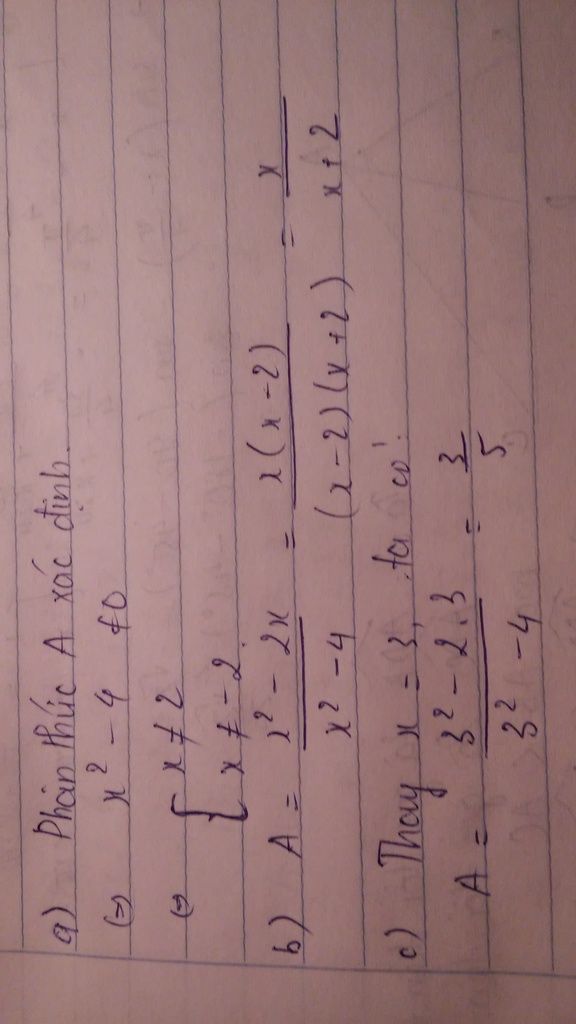 a) Phân thức A xác định.
(=) x² - 4 ≠ 0
(=) { x ≠ 2
x ≠ -2.
b) A = (x² - 2x)/(x² - 4) = x(x - 2)/((x - 2)(x + 2)) = x/(x + 2)
c) Thay x = 3, ta có:
A = (3² - 2.3)/(3² - 4) = 3/5